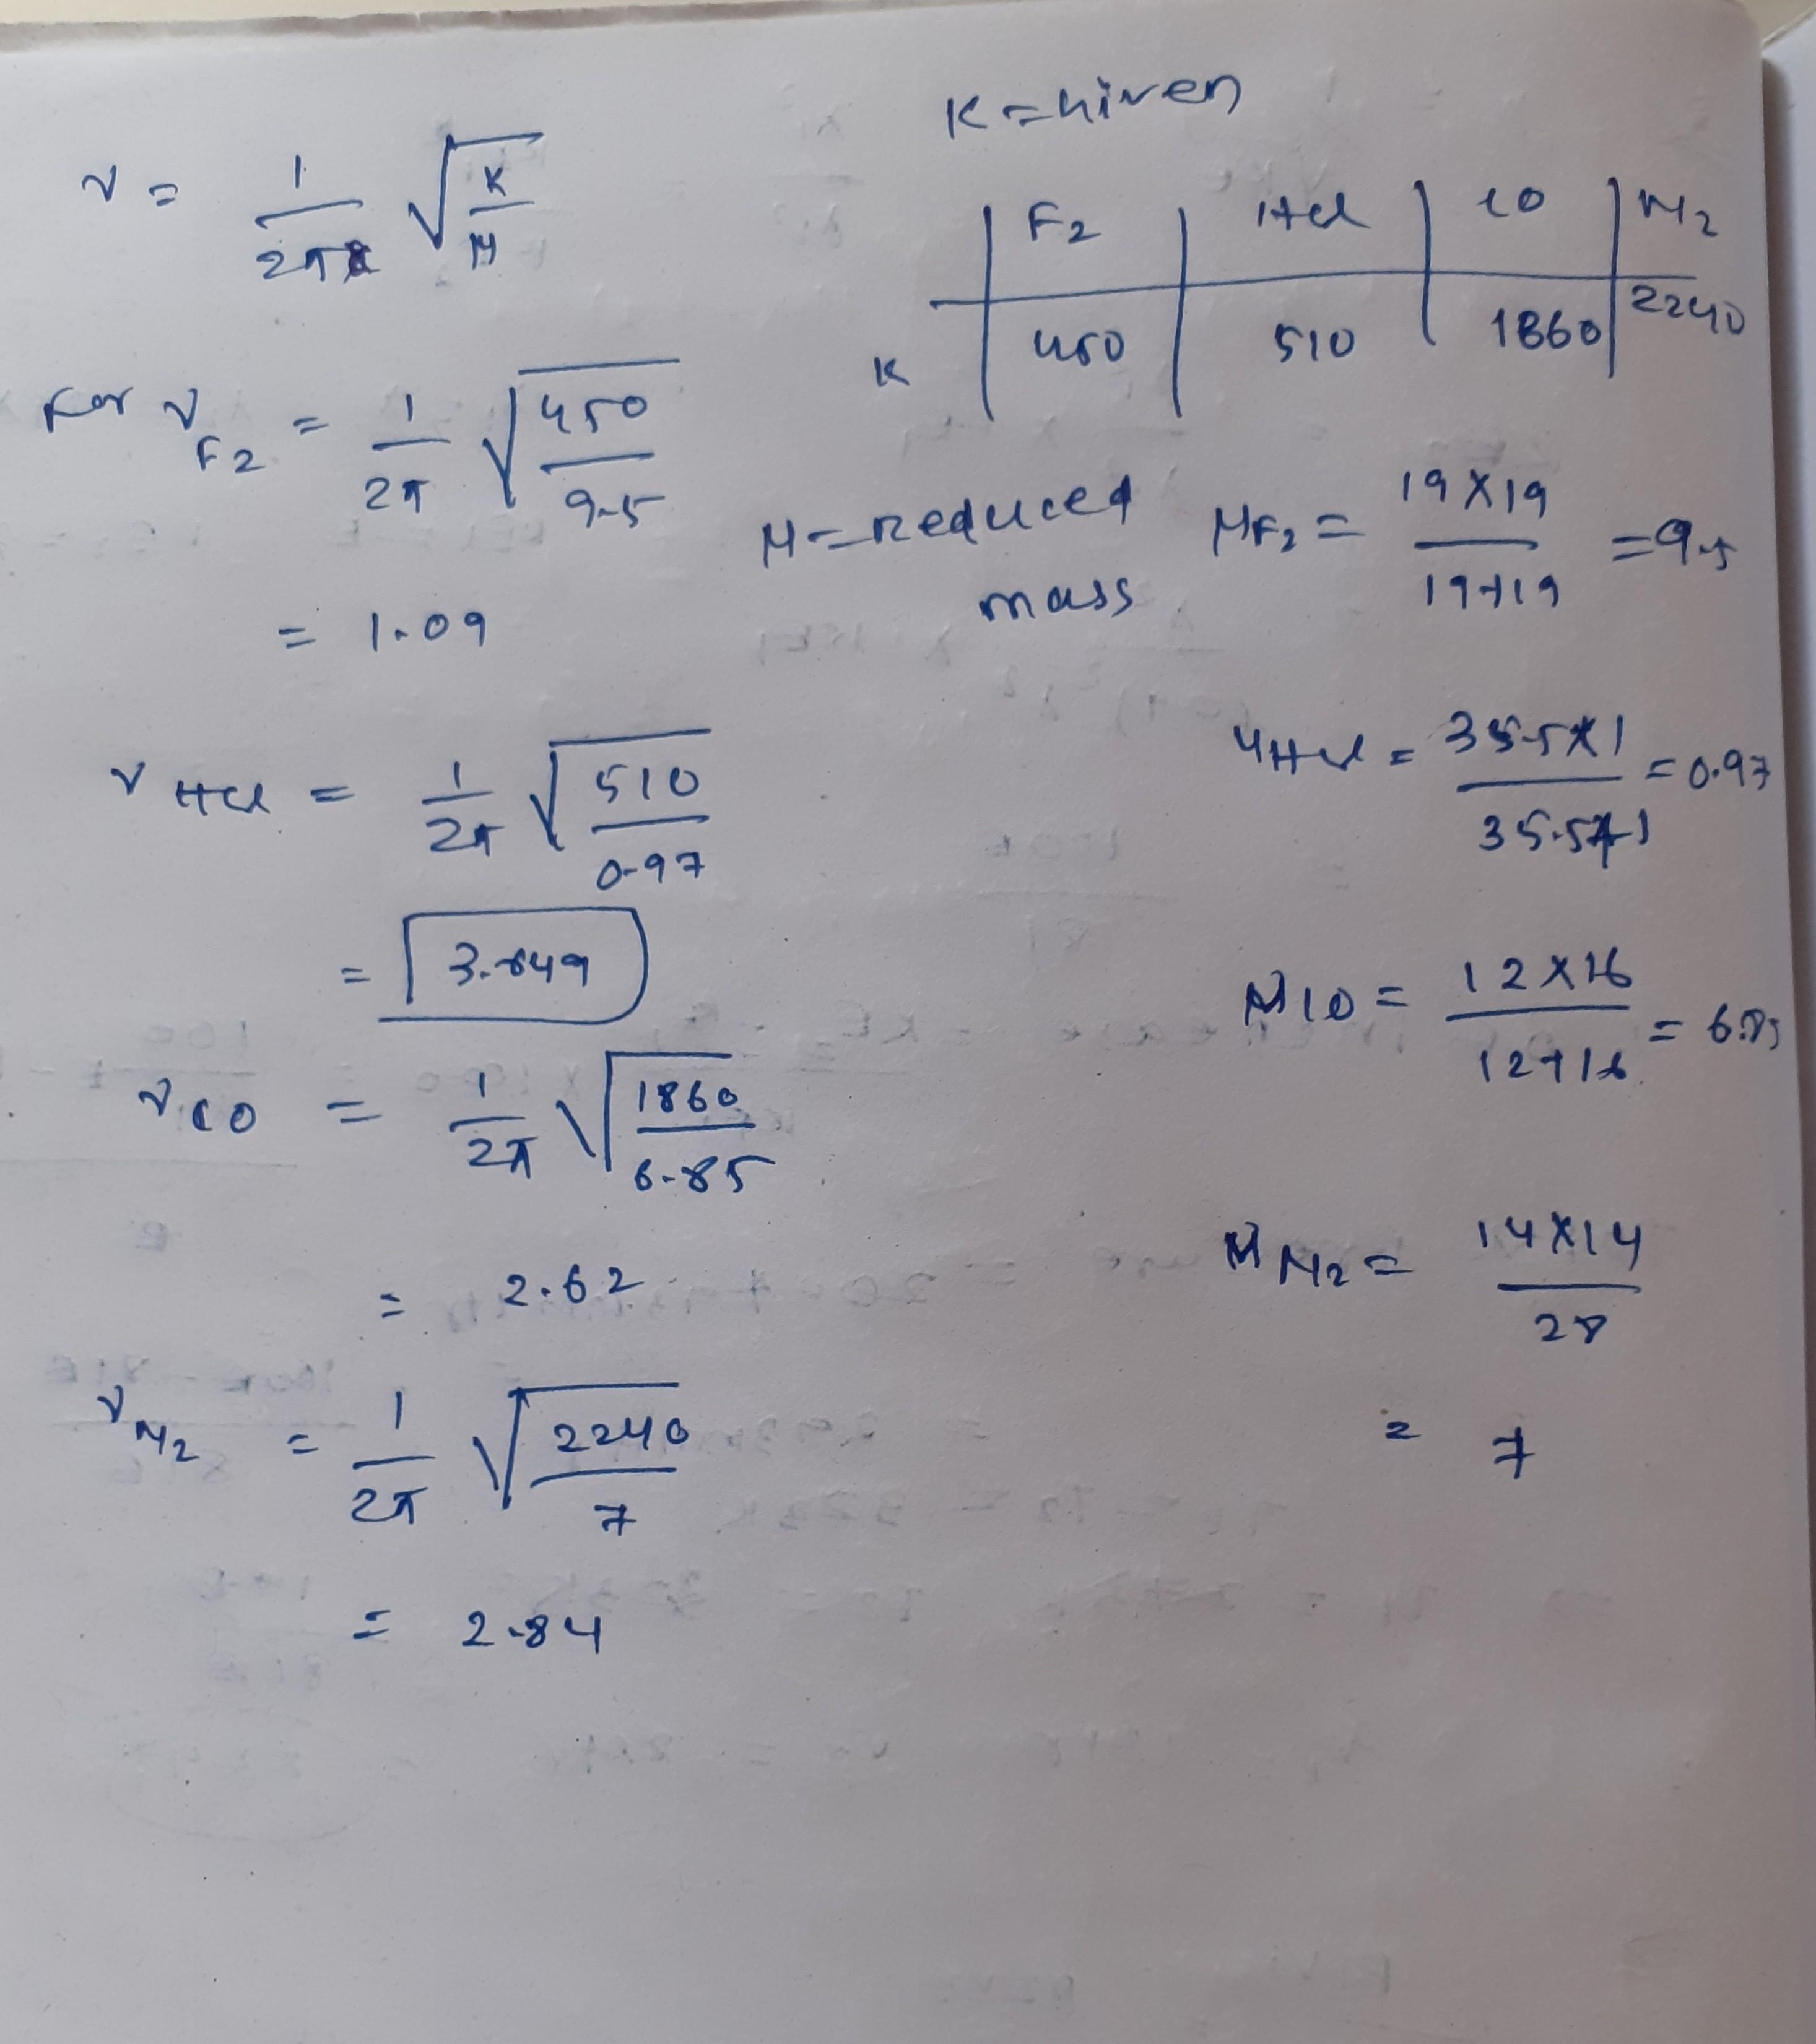 K = Given
ν = 1/2π √K/μ
F2 | HCl | CO | N2
K | 450 | 510 | 1860 | 2240
For ν F2 = 1/2π √450/9.5
= 1.09
μ = Reduced mass
μF2 = 19×19/19+19 = 9.5
ν HCl = 1/2π √510/0.97
μHCl = 35.5×1/35.5+1 = 0.97
= 3.649
μCO = 12×16/12+16 = 6.85
ν CO = 1/2π √1860/6.85
= 2.62
μ N2 = 14×14/28
= 7
ν N2 = 1/2π √2240/7
= 2.84